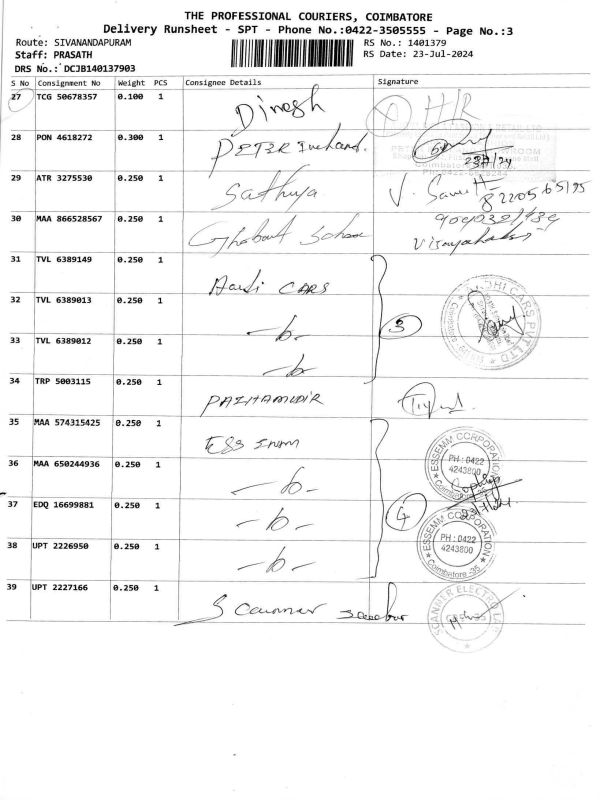 THE PROFESSIONAL COURIERS, COIMBATORE
Delivery Runsheet - SPT - Phone No.:0422-3505555 - Page No.:3
Route: SIVANANDAPURAM RS No.: 1401379
Staff: PRASATH RS Date: 23-Jul-2024
DRS No.: DCJB140137903
S No Consignment No Weight PCS Consignee Details Signature
27 TCG 50678357 0.100 1 Dinesh H/R
28 PON 4618272 0.300 1 PETER
29 ATR 3275530 0.250 1 Sathya V.
30 MAA 866528567 0.250 1
31 TVL 6389149 0.250 1 CARS
32 TVL 6389013 0.250 1 3
33 TVL 6389012 0.250 1
34 TRP 5003115 0.250 1 PAZHAMUDIR
35 MAA 574315425 0.250 1 ESS
36 MAA 650244936 0.250 1
ESSEMM CORPORATION
PH : 0422
4243800
Coimbatore
37 EDQ 16699881 0.250 1 4
38 UPT 2226950 0.250 1
ESSEMM CORPORATION
PH : 0422
4243800
Coimbatore -35
39 UPT 2227166 0.250 1